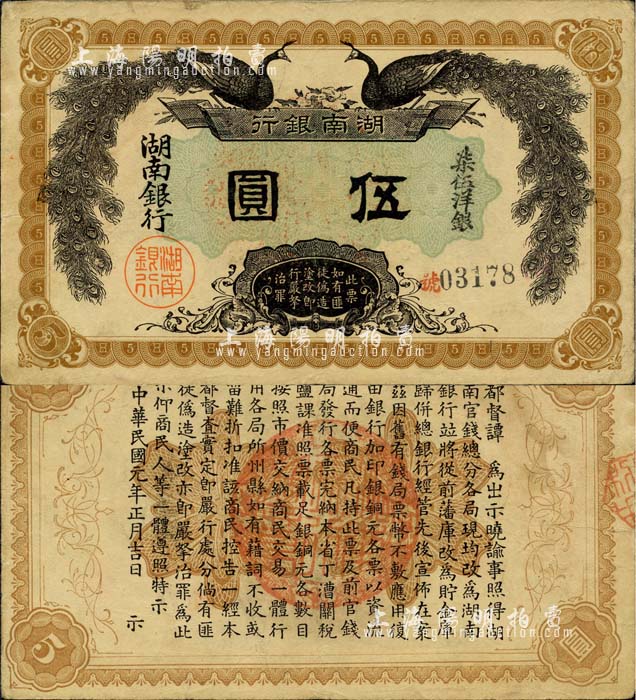 上海陽明拍賣
www.yangmingauction.com
行銀南湖
湖南銀行
圓伍
柒伍洋銀
湖南銀行
此票
如有匪
徒偽造
塗改即
行嚴拏
治罪
號03178
5
上海陽明拍賣
www.yangmingauction.com
都督譚 為出示曉諭事照得湖
南官錢總分各局現均改為湖南
銀行竝將從前藩庫改為貯金庫
歸併總銀行經管先後宣佈在案
茲因舊有錢局票幣不敷應用復
由銀行加印銀銅元各票以資流
通而便商民凡持此票及前官錢
局發行各票完納本省丁漕關稅
鹽課准照票載足銀銅元各數目
按照市價交納商民交易一體行
用各局所州縣如有藉詞不收或
留難折扣准該商民控告一經本
都督查實定即嚴行處分倘有匪
徒偽造塗改亦即嚴拏治罪為此
示仰商民人等一體遵照特示
中華民國元年正月吉日 示
上海陽明拍賣
www.yangmingauction.com
5